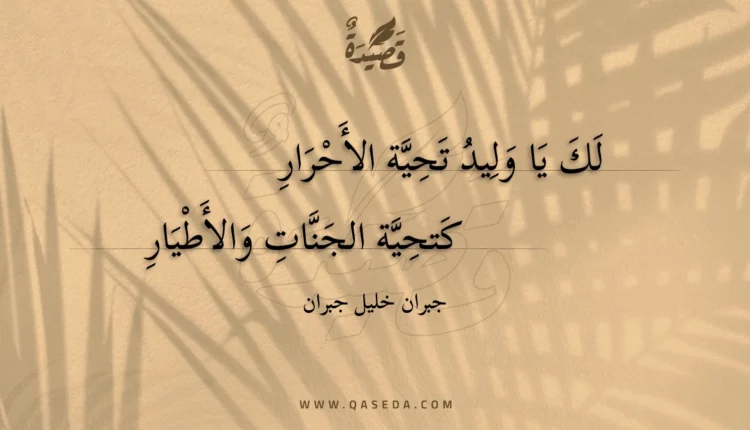 قَصِيْدَةٌ
لَكَ يَا وَلِيدُ تَحِيَّة الأَحْرَارِ
كَتحِيَّة الجَنَّاتِ وَالأَطْيَارِ
جبران خليل جبران
WWW.QASEDA.COM